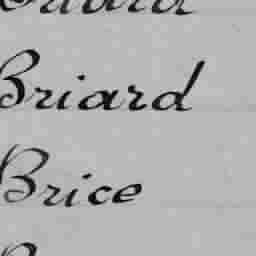 Briard
Brice